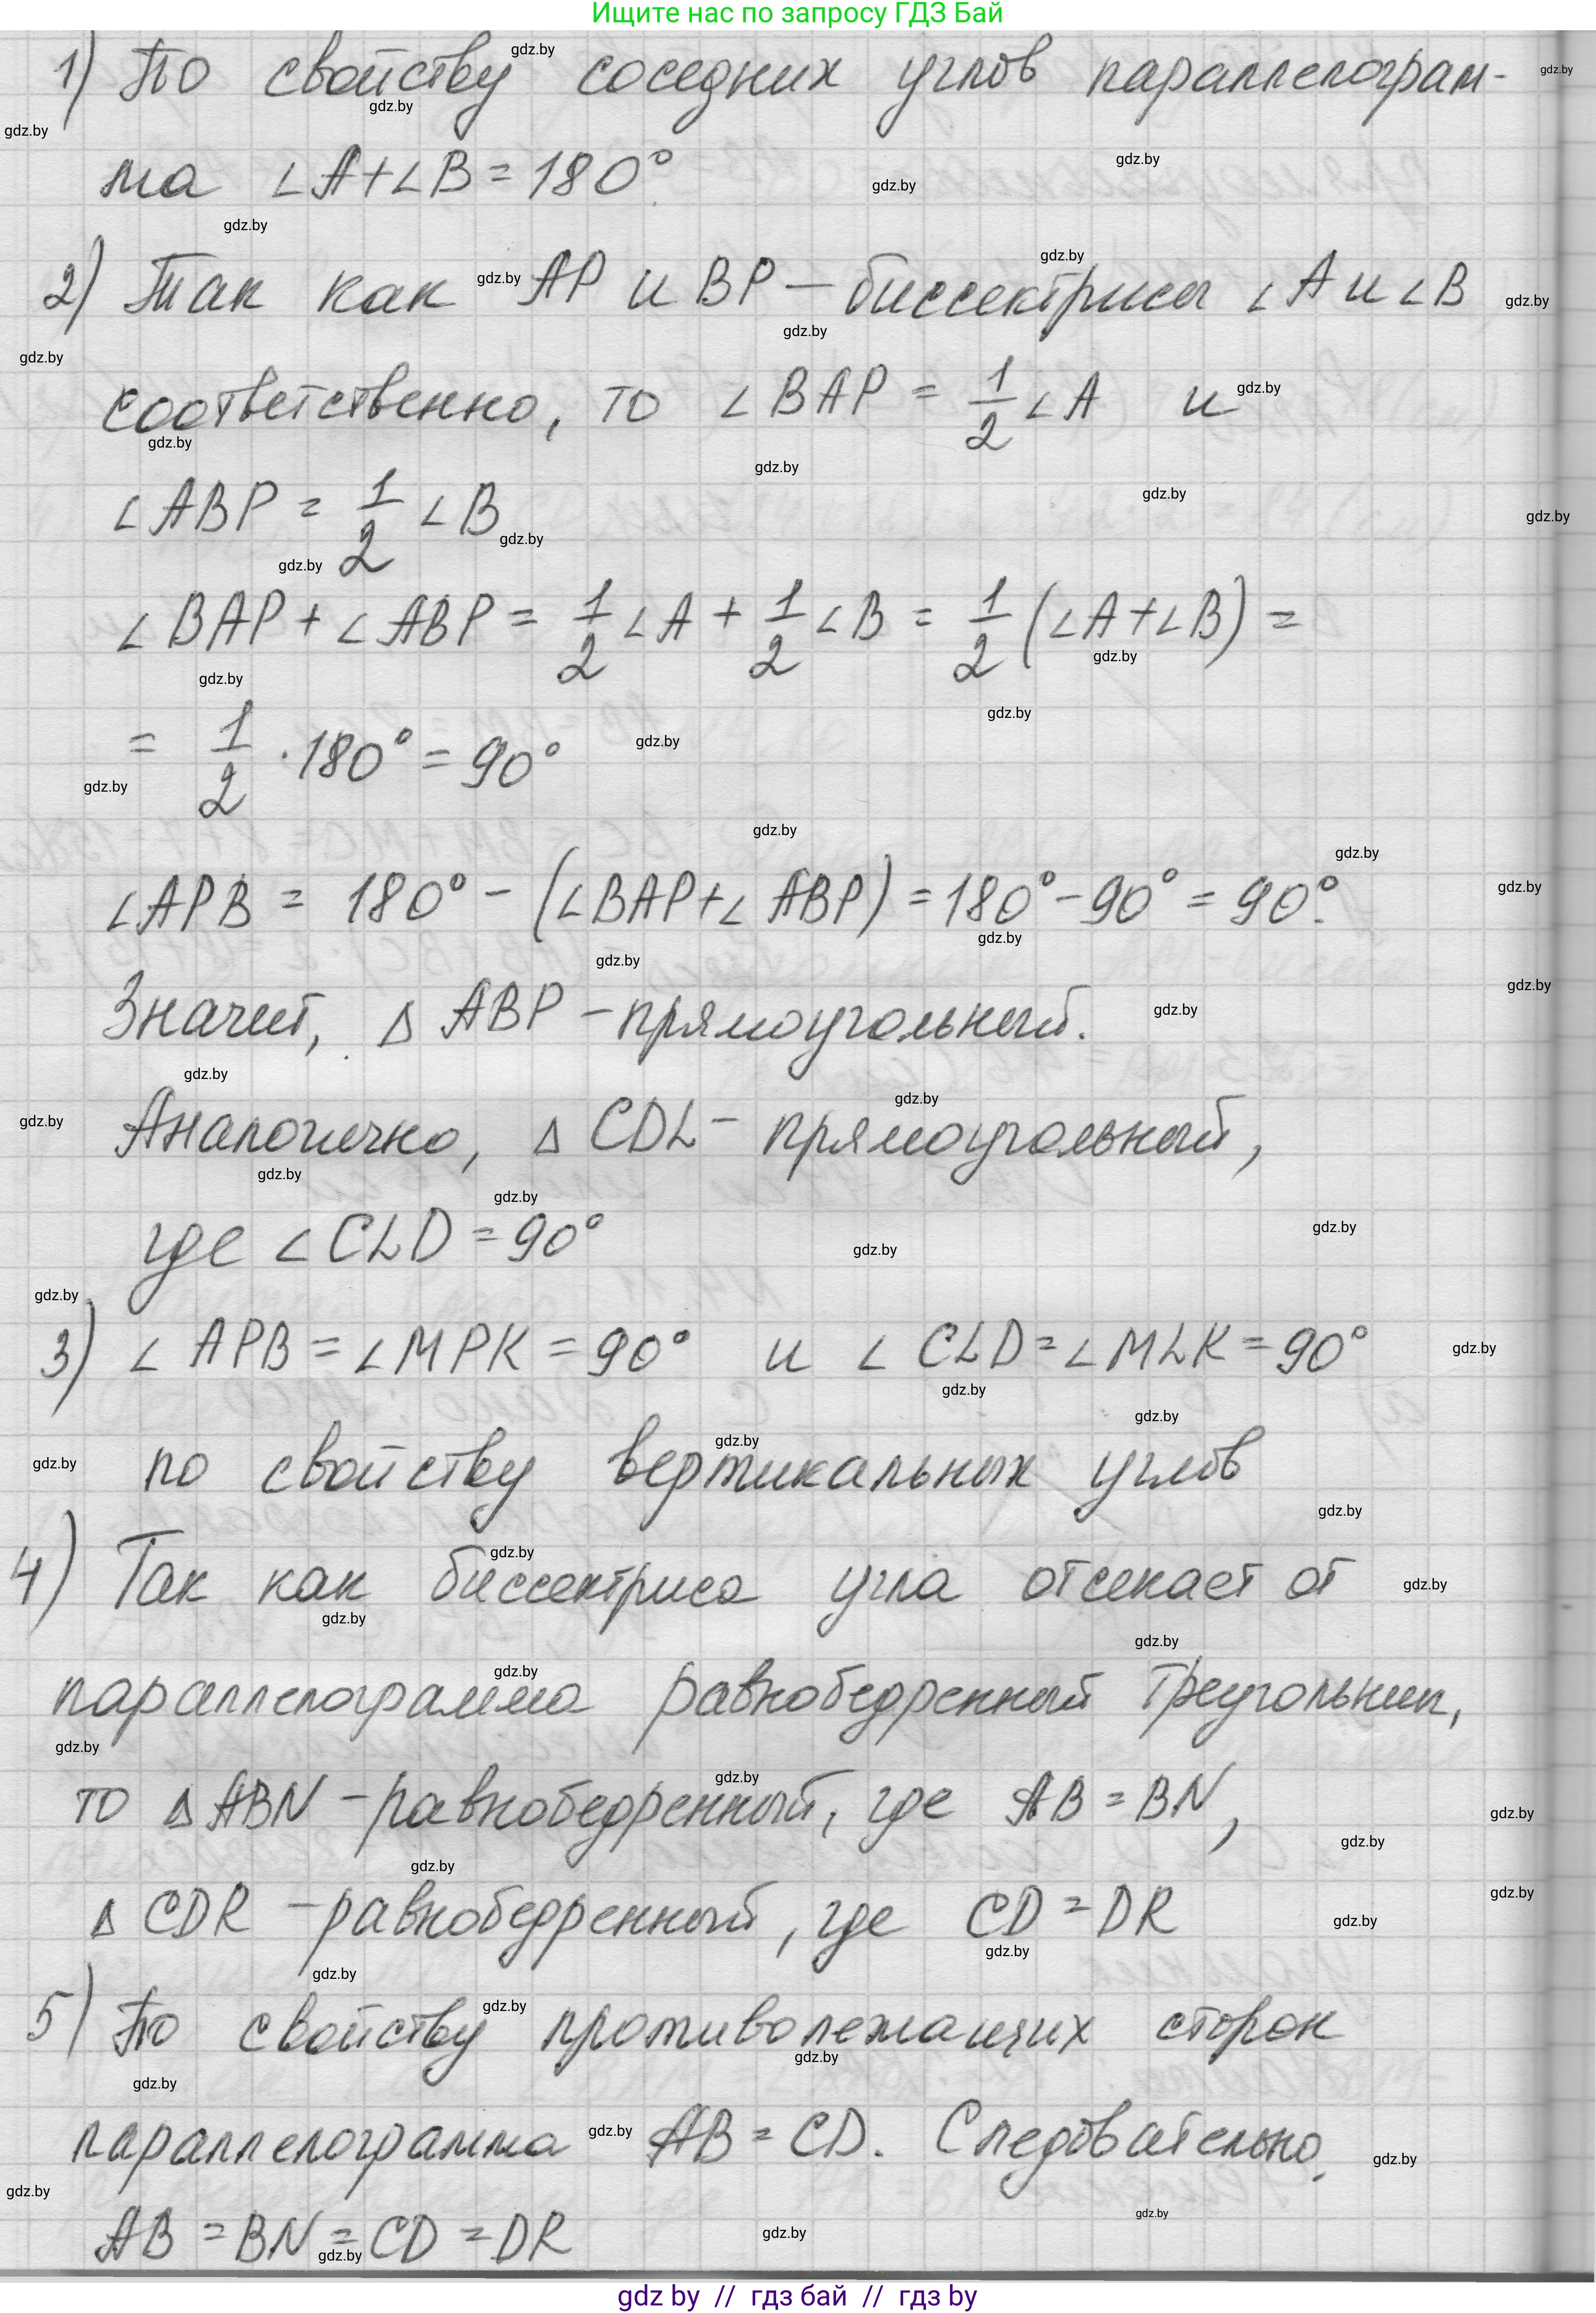 Ищите нас по запросу ГДЗ Бай
1) По свойству соседних углов параллелограм-
ма ∠A+∠B=180°
2) Так как AP и BP – биссектрисы ∠A и ∠B
соответственно, то ∠BAP = 1/2 ∠A и
∠ABP = 1/2 ∠B
∠BAP + ∠ABP = 1/2 ∠A + 1/2 ∠B = 1/2 (∠A+∠B) =
= 1/2 · 180° = 90°
∠APB = 180° – (∠BAP+∠ABP) = 180° – 90° = 90°.
Значит, Δ ABP – прямоугольный.
Аналогично, Δ CDL – прямоугольный,
где ∠CLD = 90°
3) ∠APB = ∠MPK = 90° и ∠CLD = ∠MLK = 90°
по свойству вертикальных углов
4) Так как биссектриса угла отсекает от
параллелограмма равнобедренный треугольник,
то Δ ABN – равнобедренный, где AB = BN,
Δ CDR – равнобедренный, где CD = DR
5) По свойству противолежащих сторон
параллелограмма AB = CD. Следовательно,
AB = BN = CD = DR
gdz by // гдз бай // гдз by